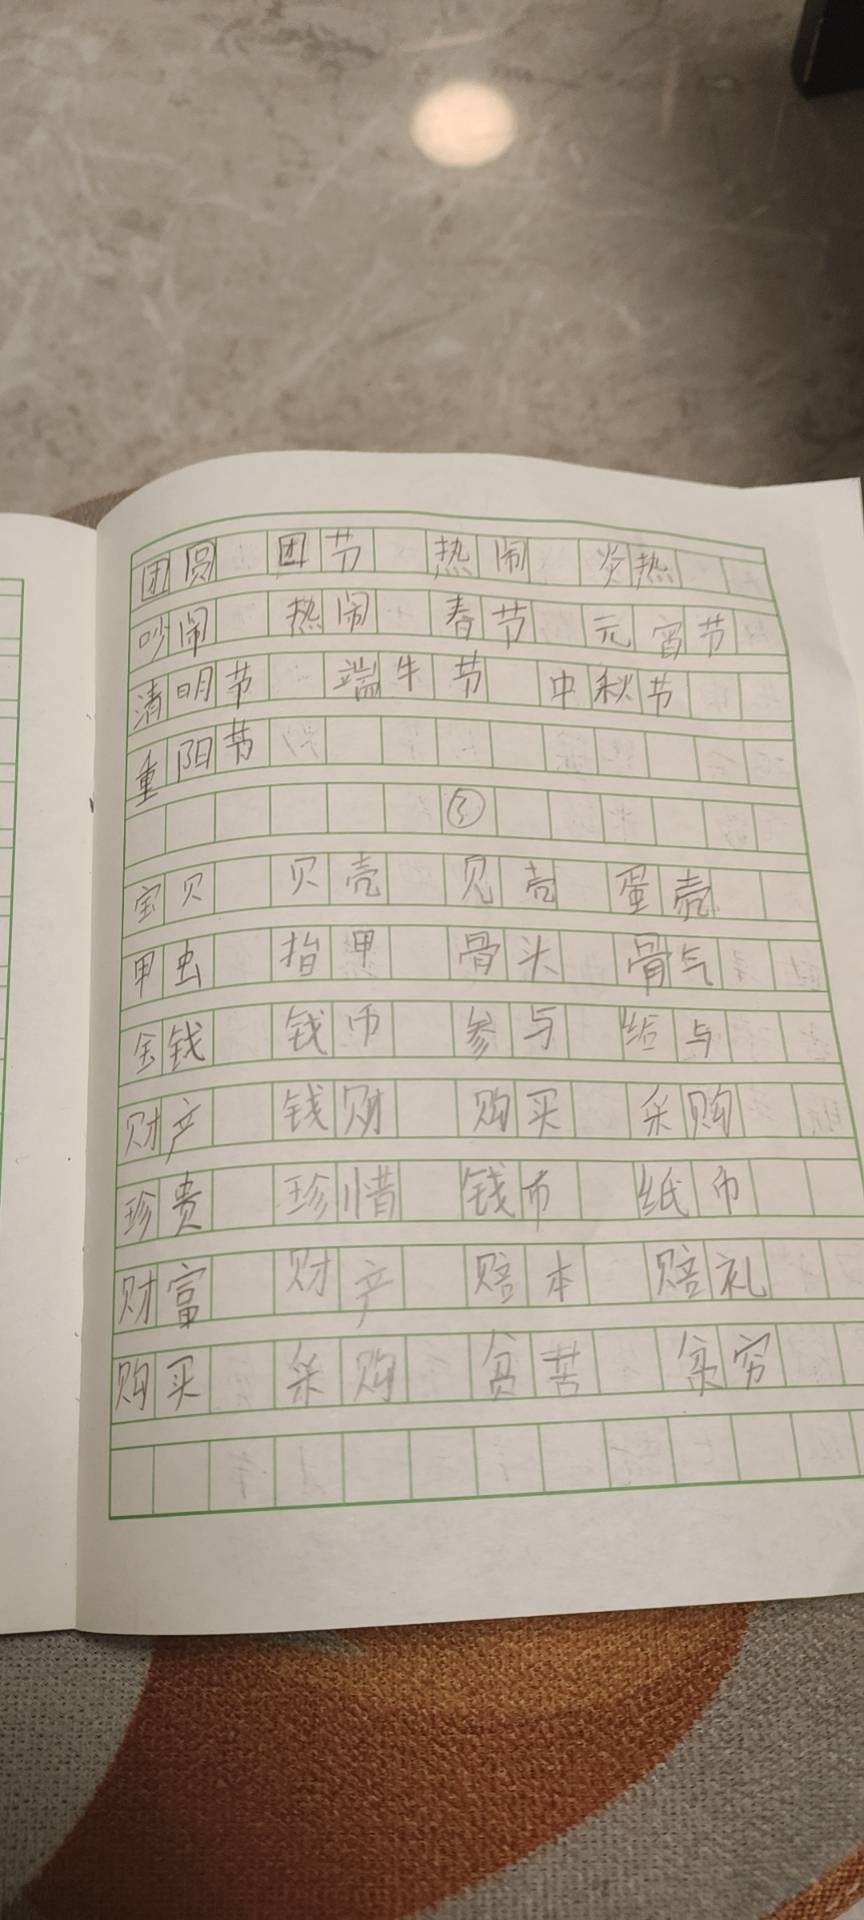 团圆 团节 热闹 炎热
吵闹 热闹 春节 元宵节
清明节 端午节 中秋节
重阳节
③
宝贝 贝壳 见壳 蛋壳
甲虫 指甲 骨头 骨气
金钱 钱币 参与 给与
财产 钱财 购买 采购
珍贵 珍惜 钱币 纸币
财富 财产 赔本 赔礼
购买 采购 贫苦 贫穷